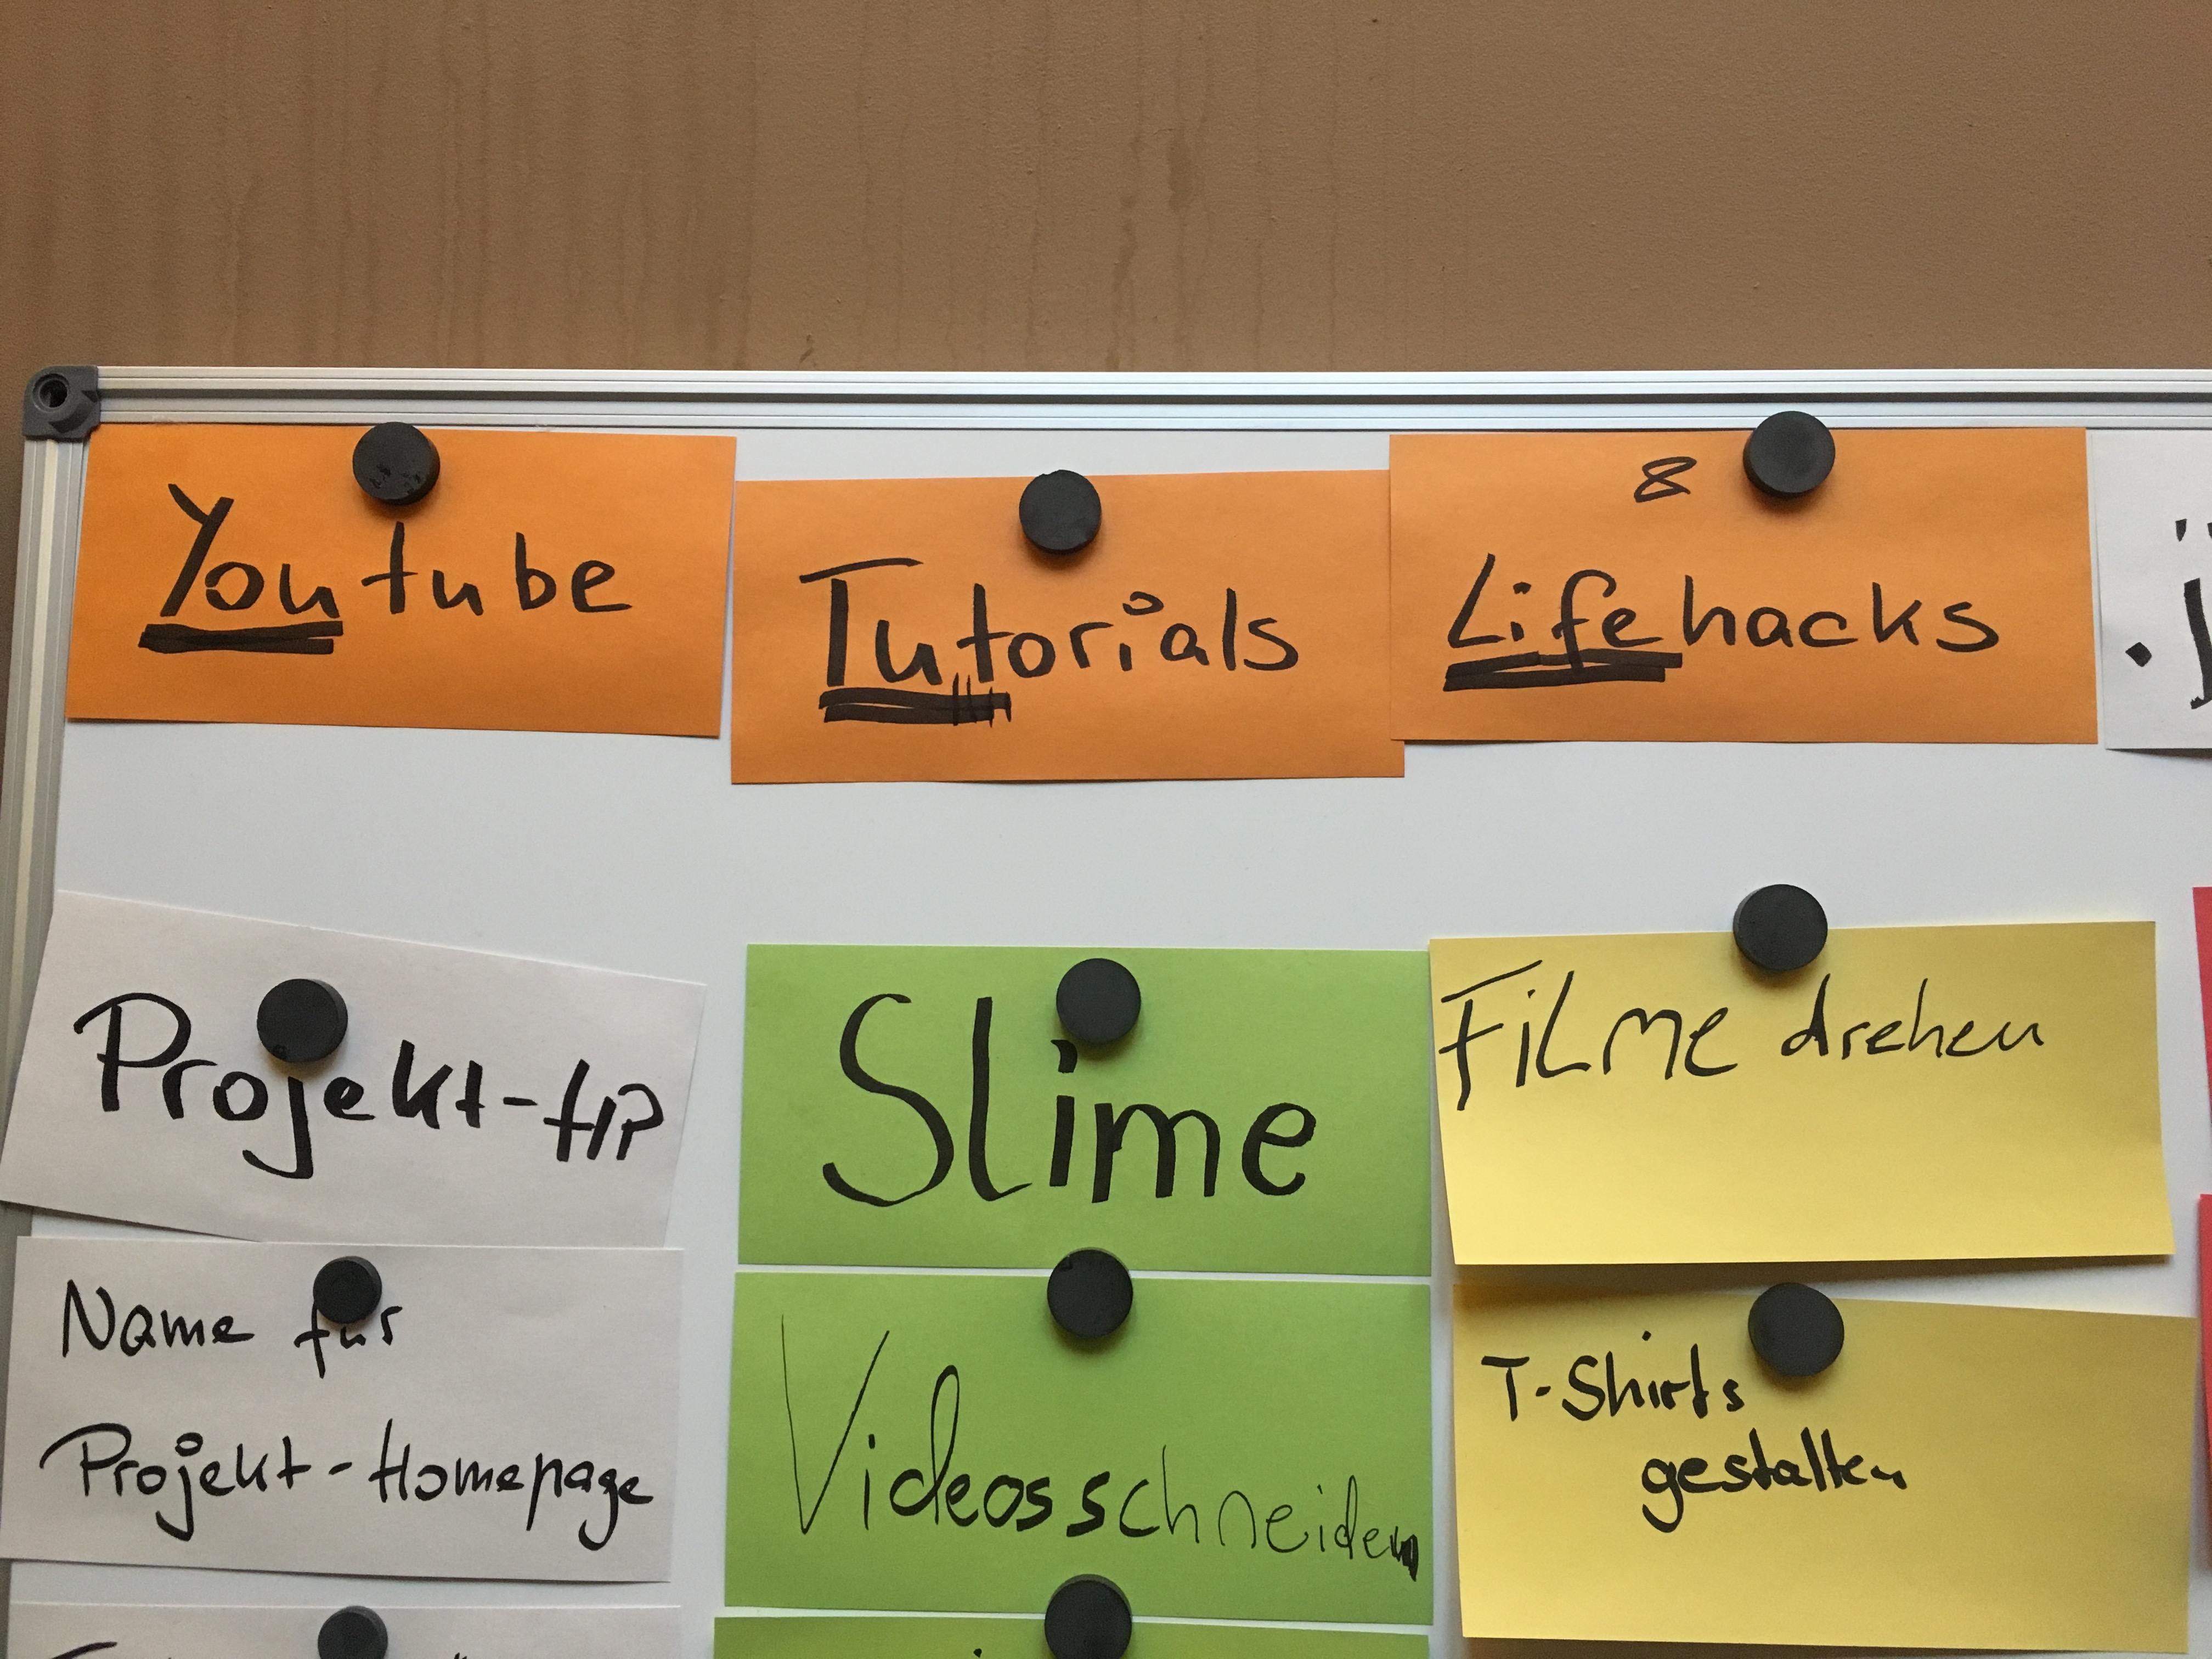 Youtube
Tutorials
8
Lifehacks
Projekt-HP
Slime
Filme drehen
Name für
Projekt-Homepage
Videosschneiden
T-Shirts
gestalten